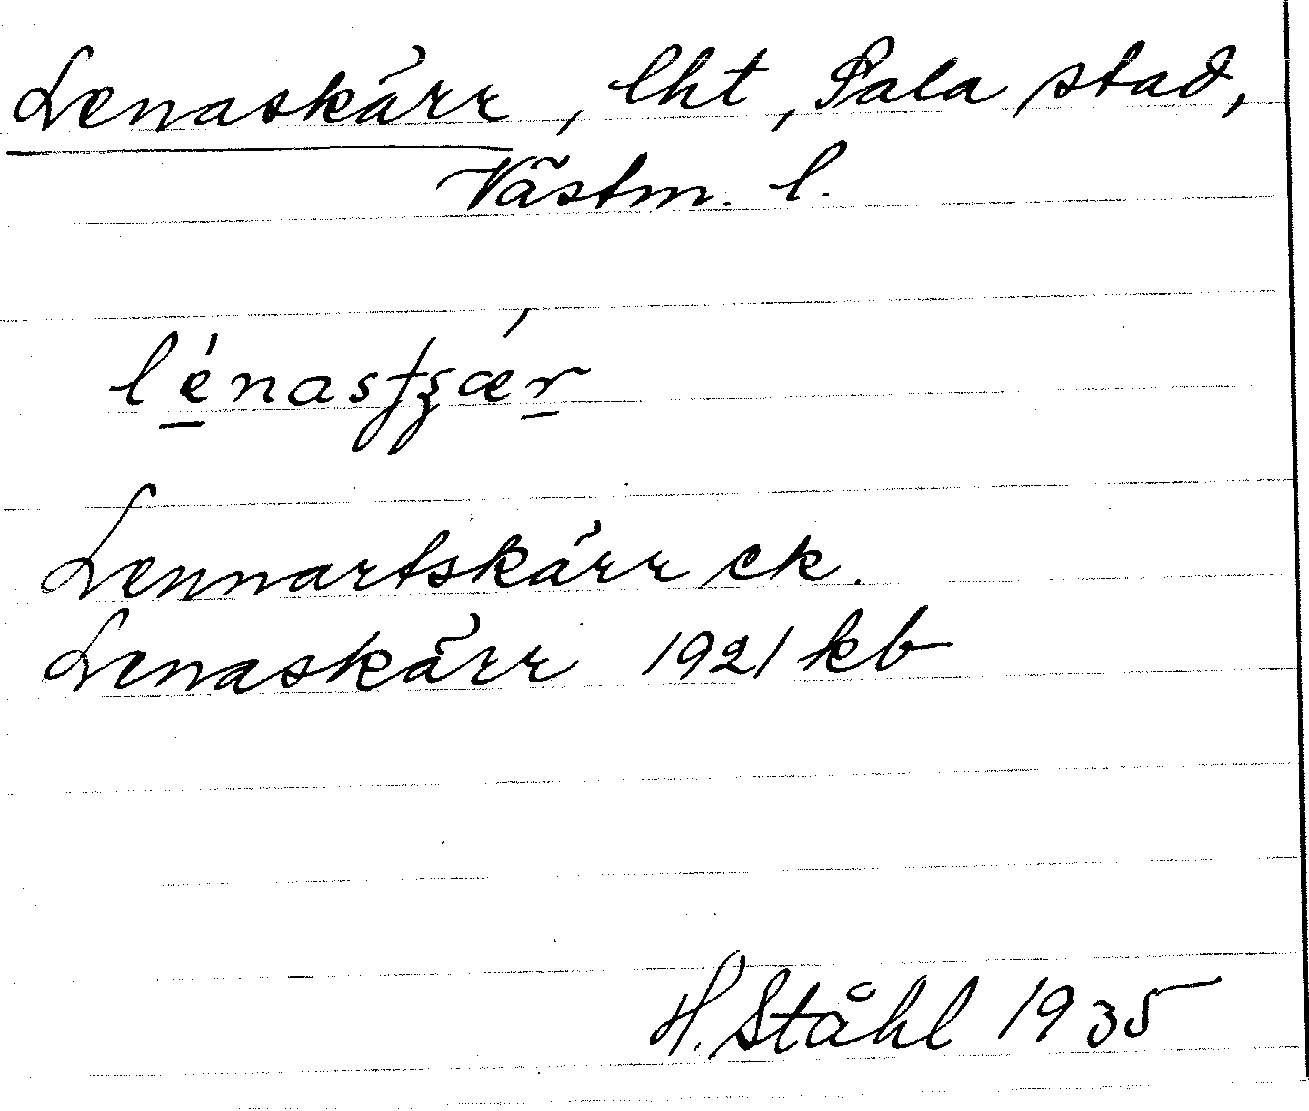 Lenaskärr, lht, Sala stad,
Västm. l.
Lennartskärr ek.
Lenaskärr 1921 kb
H. Ståhl 1935